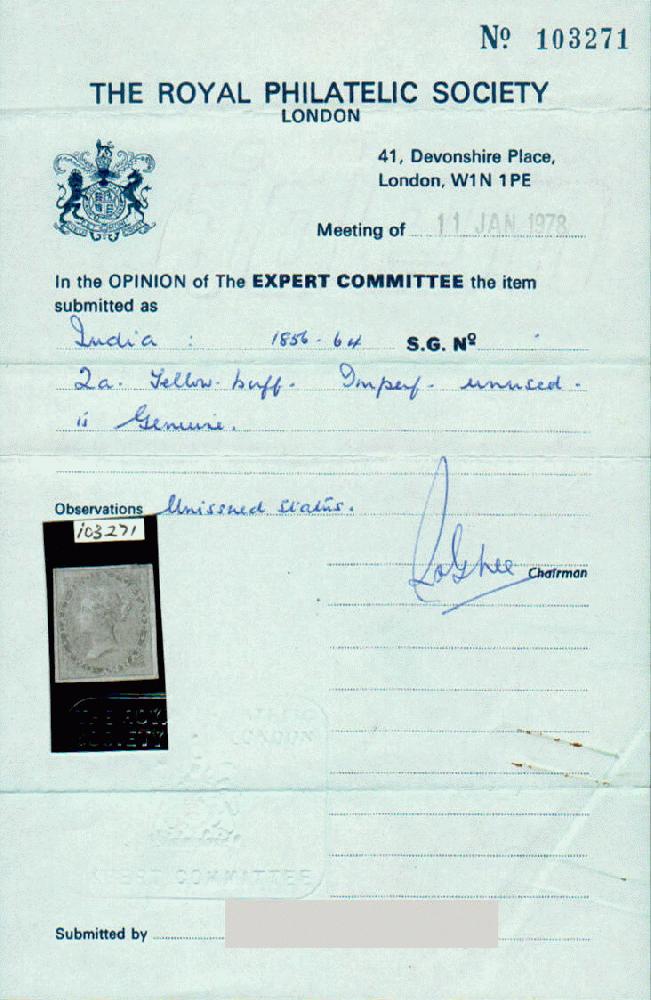 Nº 103271
THE ROYAL PHILATELIC SOCIETY
LONDON
41, Devonshire Place,
London, W1N 1PE
Meeting of 11 JAN 1978
In the OPINION of The EXPERT COMMITTEE the item
submitted as
India : 1856-64 S.G. Nº
2a. Yellow-buff. Imperf. unused.
is Genuine.
Observations Unissued Status.
103271
Chairman
THE ROYAL
SOCIETY LONDON
EXPERT COMMITTEE
Submitted by